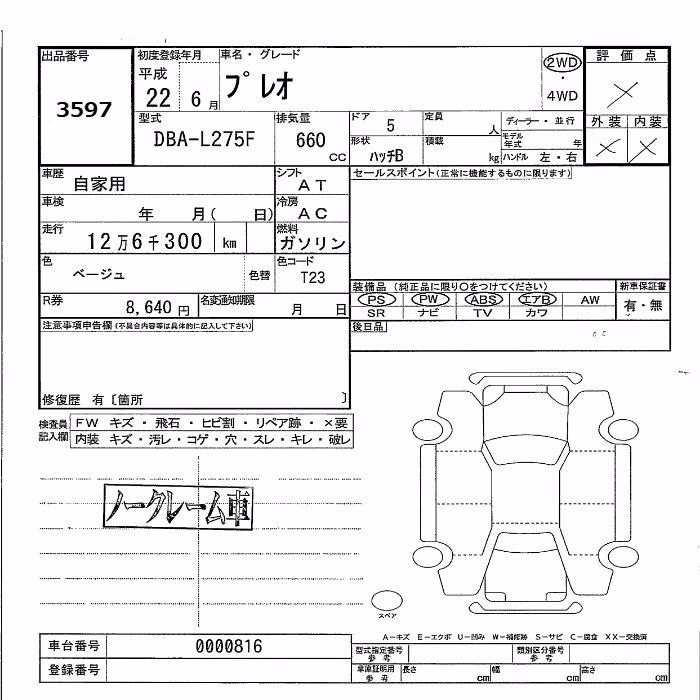 出品番号
3597
初度登録年月
平成
22 6 月
車名・グレード
プレオ
2WD
・
4WD
評価点
外装 内装
型式
DBA-L275F
排気量
660
CC
ドア 5
定員 人
ディーラー・並行
形状 ハッチB
積載 kg
モデル年式 年
ハンドル 左・右
車歴 自家用
シフト AT
セールスポイント(正常に機能するものに限ります)
車検 年 月( 日)
冷房 AC
走行 12万6千300 km
燃料 ガソリン
色 ベージュ
色替
色コード T23
装備品 (純正品に限り○をつけてください)
新車保証書
PS PW ABS エアB AW
有・無
SR ナビ TV カワ
R券 8,640 円
名変通知期限 月 日
注意事項申告欄(不具合内容等は具体的に記入して下さい)
後日品
修復歴 有〔箇所 〕
検査員記入欄
FW キズ・飛石・ヒビ割・リペア跡・×要
内装 キズ・汚レ・コゲ・穴・スレ・キレ・破レ
ノークレーム車
スペア
A-キズ E-エクボ U-凹み W-補修跡 S-サビ C-腐食 XX-交換済
車台番号 0000816
型式指定番号 参考
類別区分番号 参考
登録番号
車庫証明用 参考
長さ cm 幅 cm 高さ cm